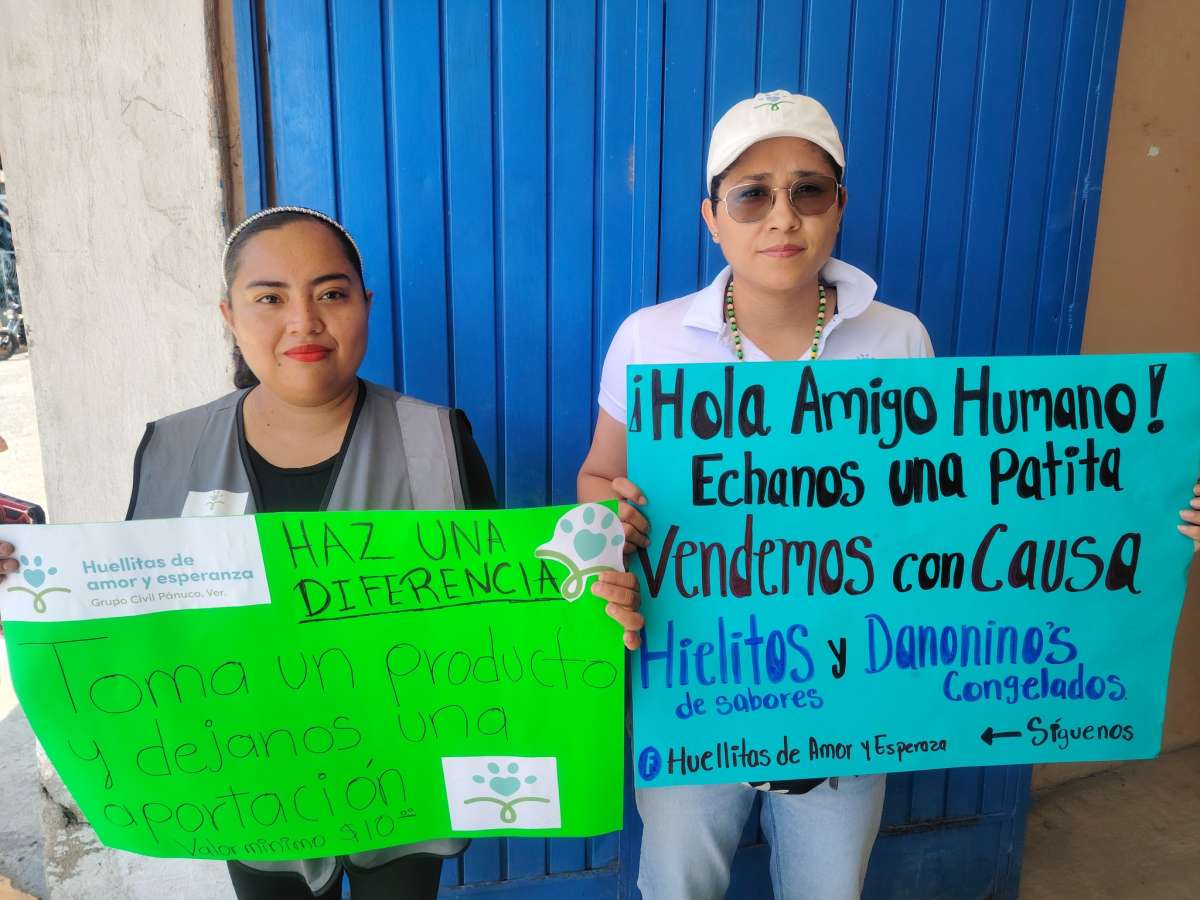 Huellitas de
amor y esperanza
Grupo Civil Pánuco, Ver.
HAZ UNA
DIFERENCIA
Toma un producto
y dejanos una
aportación
Valor minimo $10.00
¡Hola Amigo Humano!
Echanos una Patita
Vendemos con Causa
Hielitos y Danonino's
de sabores Congelados.
f Huellitas de Amor y Esperaza ← Síguenos